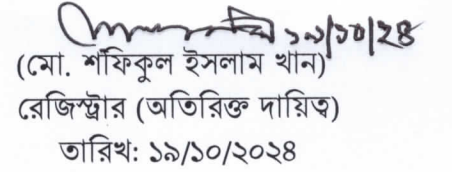 ১৯/১০/২৪
(মো. শফিকুল ইসলাম খান)
রেজিস্ট্রার (অতিরিক্ত দায়িত্ব)
তারিখ: ১৯/১০/২০২৪